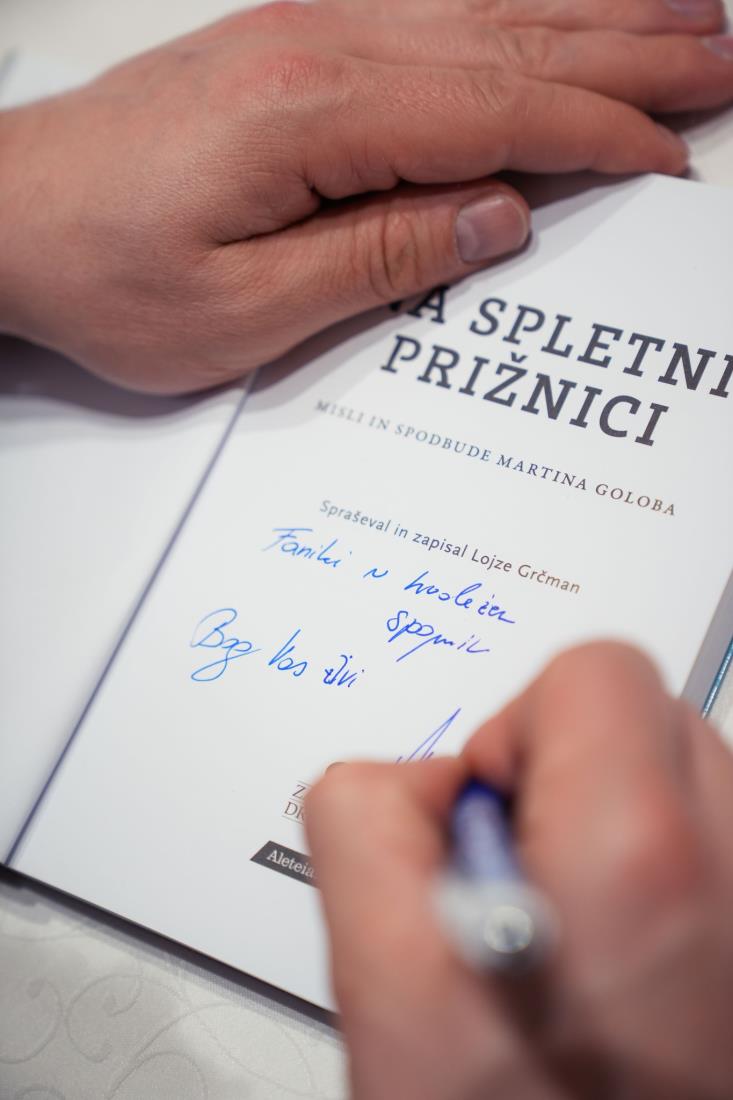 A SPLETNI
PRIŽNICI
MISLI IN SPODBUDE MARTINA GOLOBA
Spraševal in zapisal Lojze Grčman
Faniki v hvaležen
spomin
Bog Vas živi
Z
DR
Aleteia